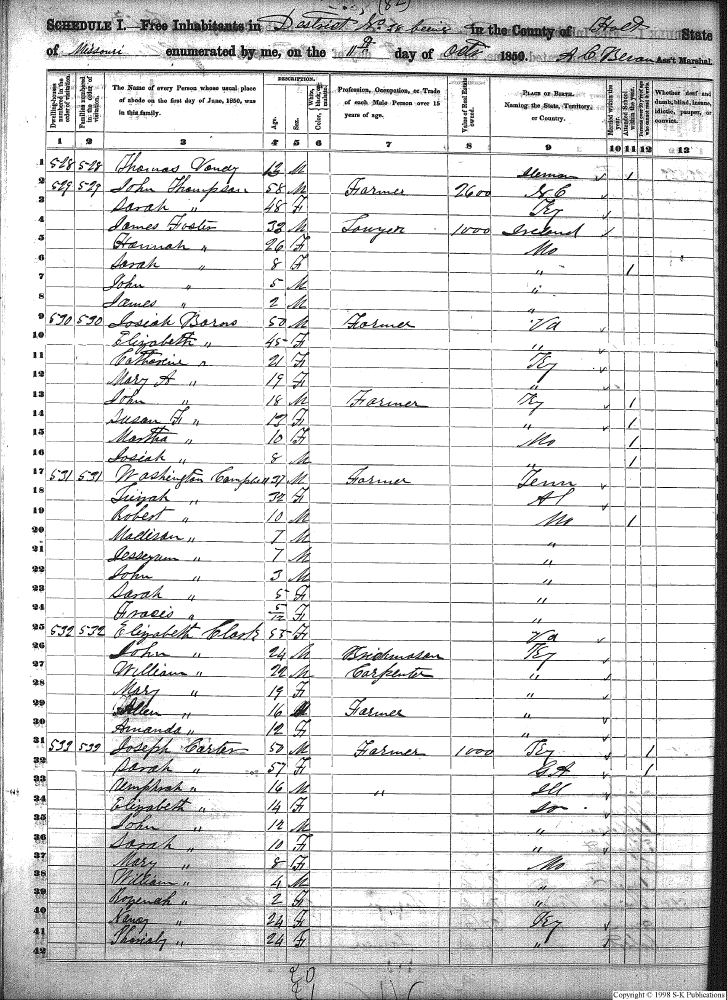 (82)
SCHEDULE I. Free Inhabitants in District No 38 being in the County of Holt State
of Missouri enumerated by me, on the 11th day of Octr 1850. Ass't Marshal.
DESCRIPTION.
Dwelling-houses numbered in the order of visitation. Families numbered in the order of visitation. The Name of every Person whose usual place of abode on the first day of June, 1850, was in this family. Age. Sex. Color, {White, black, or mulatto. Profession, Occupation, or Trade of each Male Person over 15 years of age. Value of Real Estate owned. PLACE OF BIRTH. Naming the State, Territory, or Country. Married within the year. Attended School within the year. Whether deaf and dumb, blind, insane, idiotic, pauper, or convict.
1 2 3 4 5 6 7 8 9 10 11 12 13
1 528 528 Thomas 12 M 1
2 529 529 John Thompson 58 M Farmer 2600
3 Sarah " 48 F Ky
4 James Foster 33 M Lawyer 1000 Ireland
5 Hannah " 26 F Mo
6 Sarah " 8 F " 1
7 John " 5 M "
8 James " 2 M "
9 530 530 Josiah 50 M Farmer Va
10 Elizabeth " 45 F "
11 Catherine " 21 F Ky
12 Mary A " 19 F "
13 John " 18 M Farmer Ky 1
14 Susan F " 13 F " 1
15 Martha " 10 F Mo 1
16 Josiah " 8 M " 1
17 531 531 Washington Campbell 37 M Farmer Tenn
18 " 32 F
19 Robert " 10 M Mo 1
20 Madison " 7 M "
21 " 7 M "
22 John " 3 M "
23 Sarah " 5 F "
24 " 5/12 F "
25 532 532 Elizabeth Clark 55 F Va
26 John " 24 M Brickmason Ky
27 William " 22 M Carpenter "
28 Mary " 19 F "
29 Allen " 16 M Farmer "
30 Amanda " 12 F "
31 533 533 Joseph Carter 50 M Farmer 1000 Ky 1
32 Sarah " 57 F 1
33 " 16 M " Ill
34 Elizabeth " 14 F Do
35 John " 12 M "
36 Sarah " 10 F "
37 Mary " 8 F Mo
38 William " 4 M "
39 " 2 F "
40 Nancy " 24 F Ky
41 " 24 F "
42
Copyright © 1998 S-K Publications